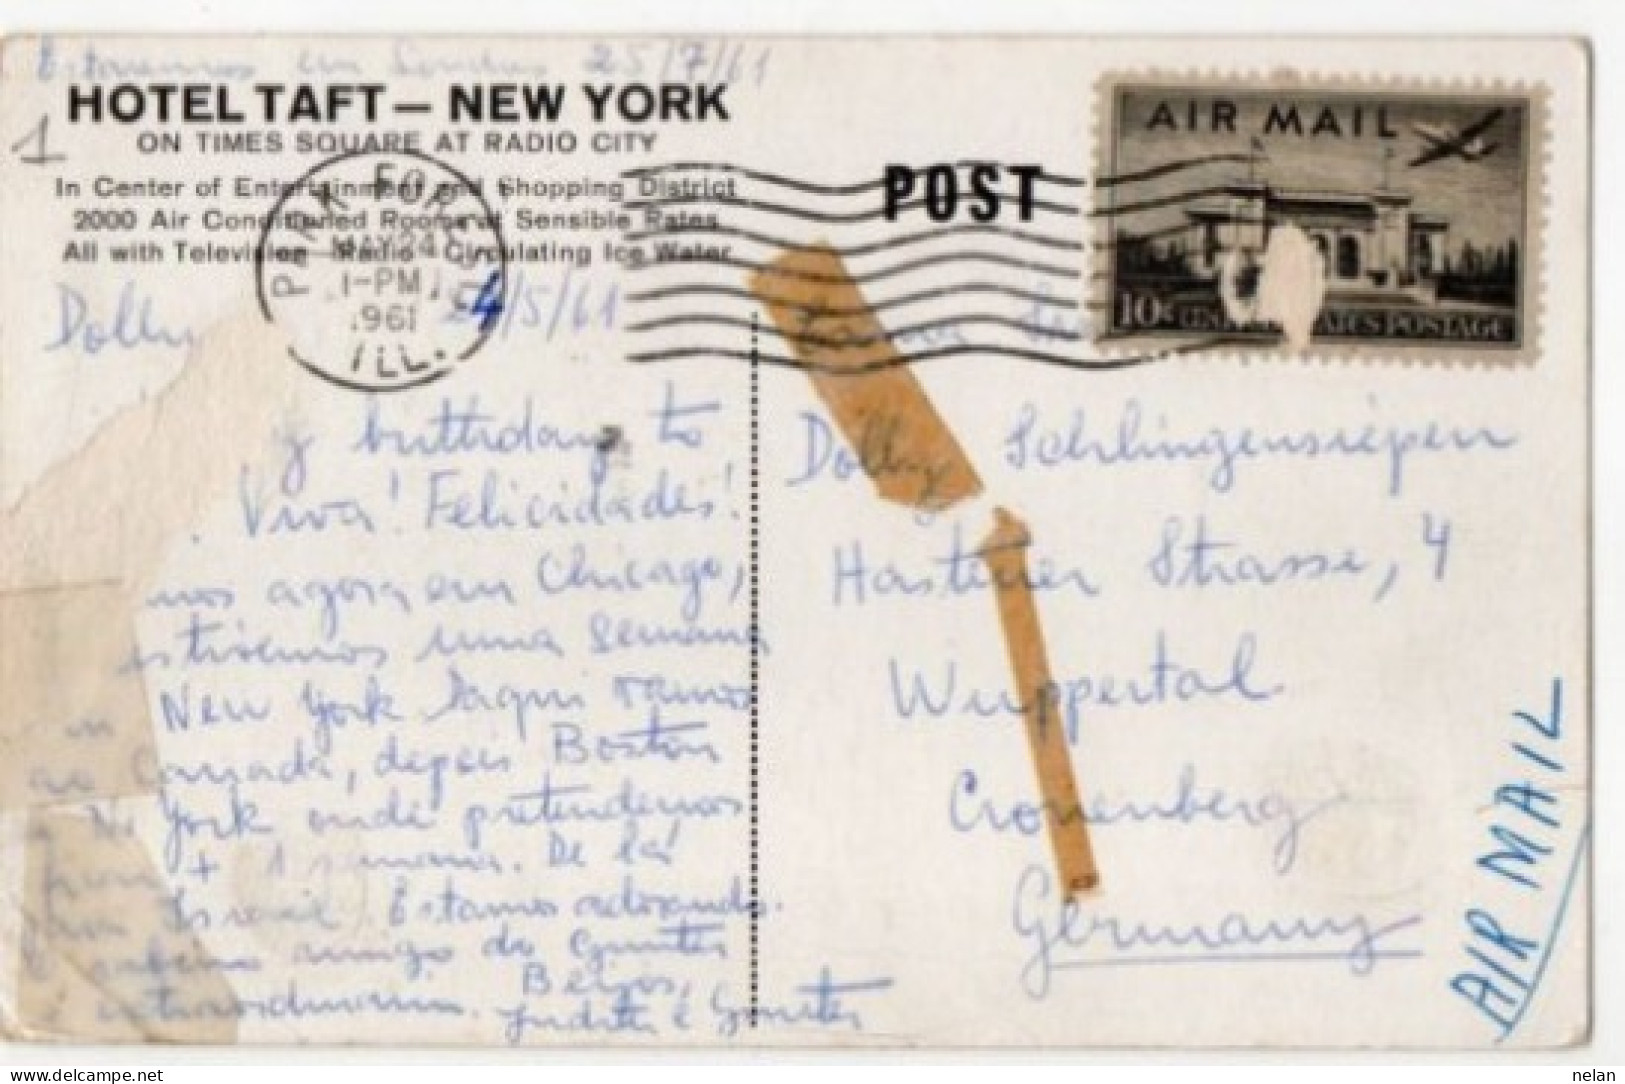 Estaremos em Londres 25/7/61
HOTEL TAFT — NEW YORK
1
ON TIMES SQUARE AT RADIO CITY
In Center of Entertainment and Shopping District
2000 Air Conditioned Rooms at Sensible Rates
All with Television Radio Circulating Ice Water
PARK FOREST
MAY 24
1-PM
1961
ILL.
POST
AIR MAIL
10c UNITED STATES POSTAGE
Dolly 24/5/61
y birthday to
Viva! Felicidades!
mos agora em Chicago,
estivemos uma semana
New York Daqui vamos
ao Canadá, depois Boston
York onde pretendemos
+ 1 semana. De lá
Israel Estamos adorando.
amigo do Gunter
extraordinario. Beijos,
Judith e Gunter
Dolly Schlingensiepen
Hastener Strasse, 4
Wuppertal
Cronenberg
Germany
AIR MAIL
nelan